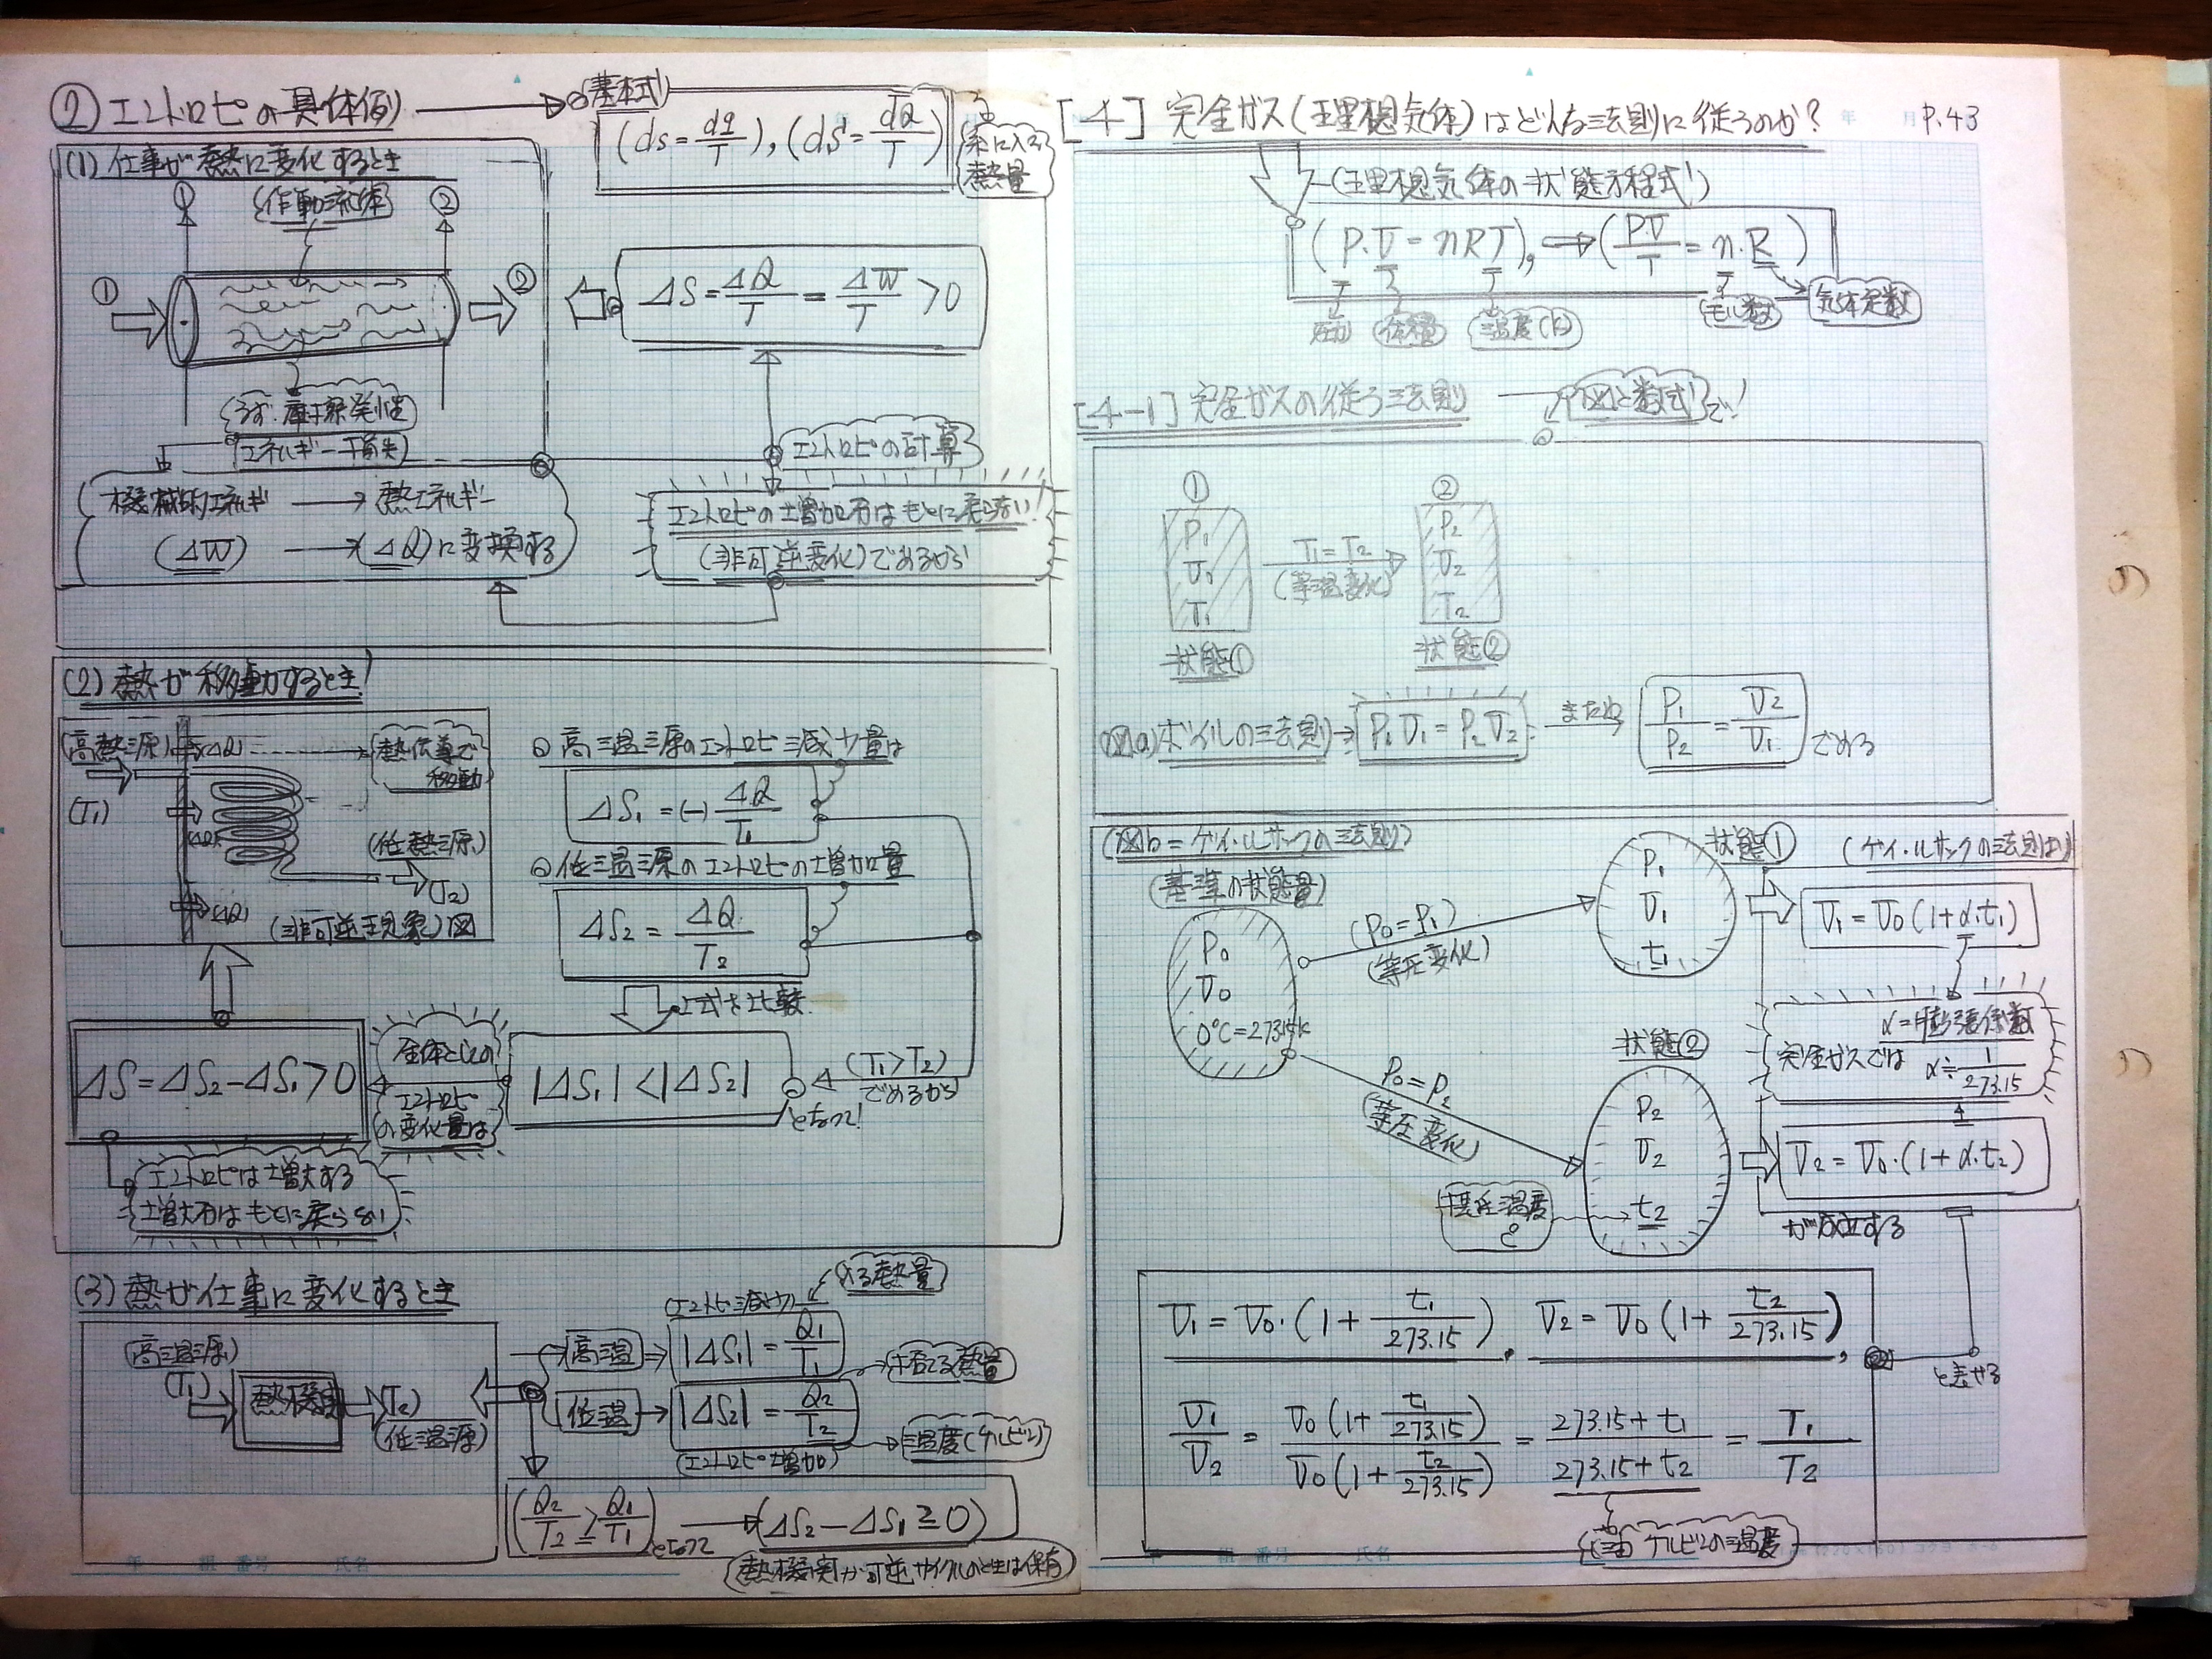 ② エントロピの具体例
基本式
(ds=dq/T), (dS=dQ/T)
系に入る
熱量
(1) 仕事が熱に変化するとき
① 作動流体 ②
① ②
ΔS=ΔQ/T=ΔW/T>0
うず・摩擦・粘性
エネルギー損失
エントロピの計算
機械的エネルギ → 熱エネルギー
(ΔW) → (ΔQ)に変換する
エントロピの増加分はもとに戻らない!
(非可逆変化)であるから
(2) 熱が移動するとき!
(高熱源) (ΔQ)
熱伝導で
移動
(T1)
(ΔQ)
(低熱源)
(T2)
(ΔQ)
(非可逆現象)図
高温源のエントロピ減少量は
ΔS1=(-)ΔQ/T1
低温源のエントロピの増加量
ΔS2=ΔQ/T2
上式を比較
ΔS=ΔS2-ΔS1>0
全体としての
エントロピ
の変化量は
|ΔS1|<|ΔS2|
となって!
(T1>T2)
であるから
エントロピは増大する
増大分はもとに戻らない
(3) 熱が仕事に変化するとき
(高温源)
(T1)
熱機関
(T2)
(低温源)
(エントロピ減少)
入る熱量
高温 → |ΔS1|=Q1/T1
捨てる熱量
低温 → |ΔS2|=Q2/T2
温度(ケルビン)
(エントロピ増加)
(Q2/T2≧Q1/T1)となって → (ΔS2-ΔS1≧0)
(熱機関が可逆サイクルのときは保存)
年 組 番号 氏名
[4] 完全ガス(理想気体)はどんな法則に従うのか?
年 月 P.43
(理想気体の状態方程式)
(P.V=nRT), ⇒ (PV/T=n.R)
圧力 体積 温度(K) モル数 気体定数
[4-1] 完全ガスの従う法則 → 図と数式で!
① ②
P1 P2
V1 V2
T1 T2
T1=T2
(等温変化)
状態① 状態②
(図a)ボイルの法則 → P1V1=P2V2 または P1/P2=V2/V1 である
(図b=ゲイ・ルサックの法則)
(基準の状態量)
P0
V0
0℃=273.15K
(P0=P1)
(等圧変化)
状態①
P1
V1
t1
(ゲイ・ルサックの法則は)
V1=V0(1+α.t1)
α=膨張係数
完全ガスでは α≒1/273.15
P0=P2
(等圧変化)
状態②
P2
V2
t2
摂氏温度
℃
V2=V0.(1+α.t2)
が成立する
V1=V0.(1+t1/273.15), V2=V0(1+t2/273.15),
と表せる
V1/V2=V0(1+t1/273.15)/V0(1+t2/273.15)=273.15+t1/273.15+t2=T1/T2
ケルビンの温度
年 組 番号 氏名